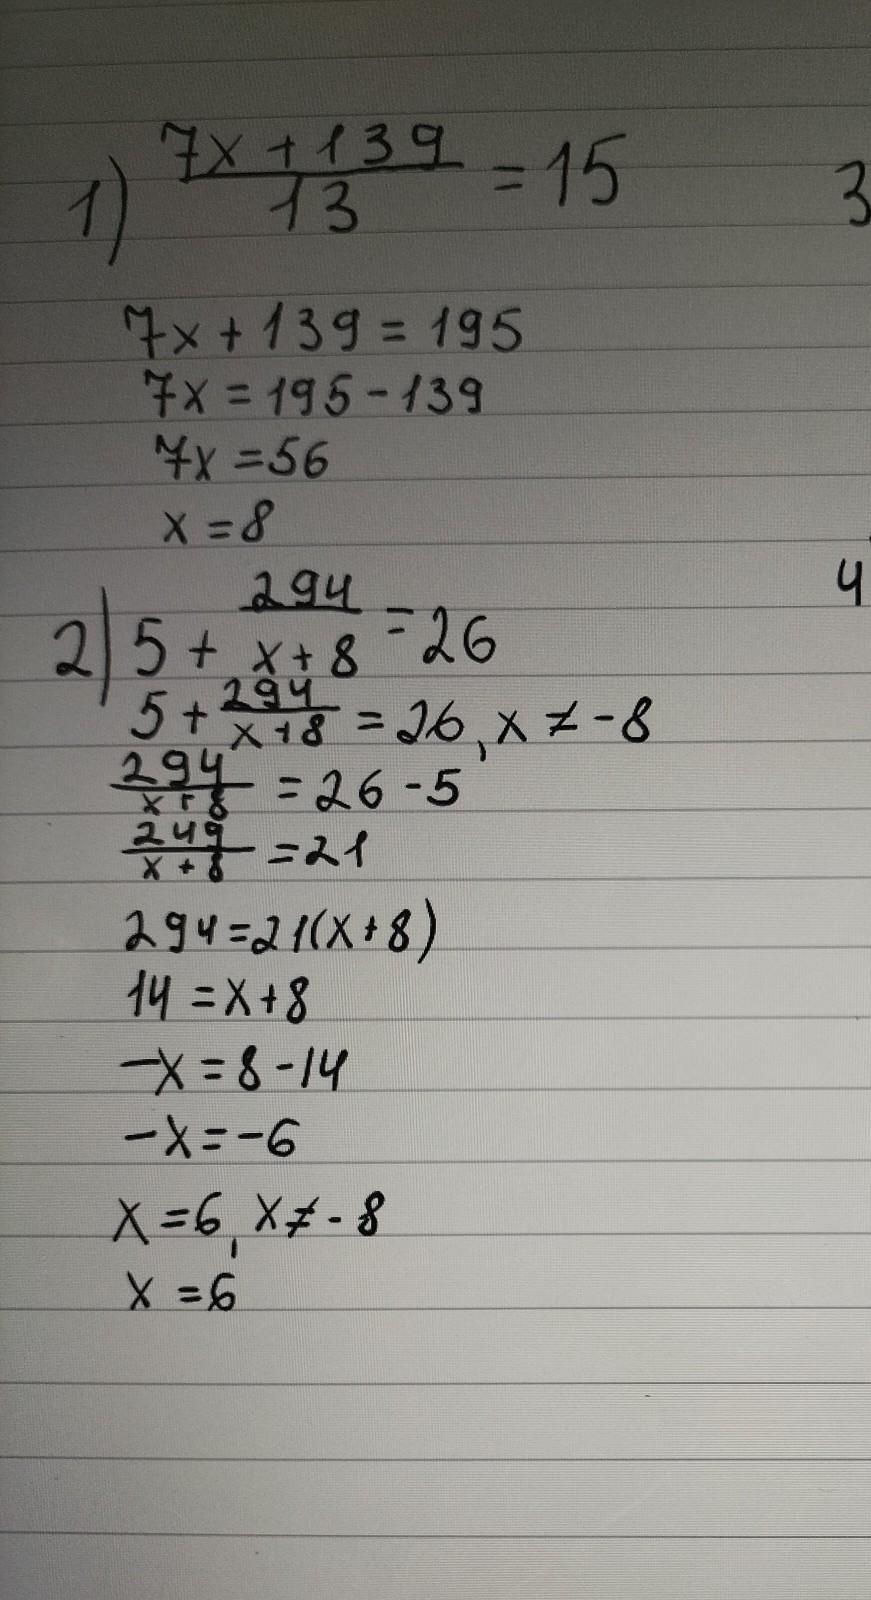 1) 7x+139/13 = 15
3
7x+139=195
7x=195-139
7x=56
x=8
4
2) 5+294/x+8=26
5+294/x+8=26, x≠-8
294/x+8=26-5
249/x+8=21
294=21(x+8)
14=x+8
-x=8-14
-x=-6
x=6, x≠-8
x=6